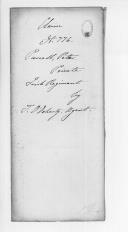 Claim
No. 776.
Purcell, Peter
Private
Irish Regiment
by
T. Doherty, Agent.